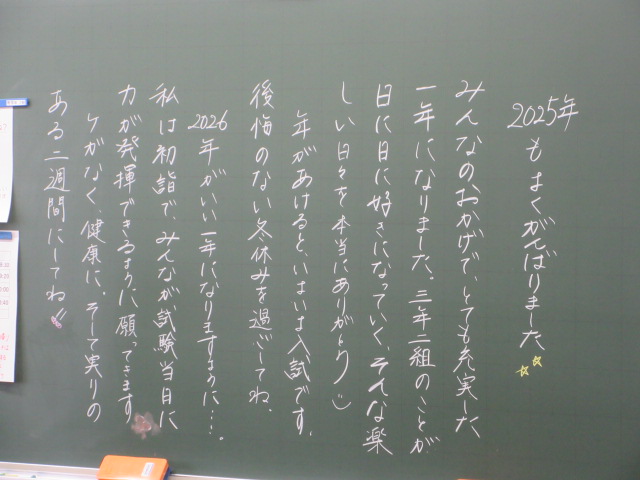 2025年もよくがんばりました☆☆
みんなのおかげで、とても充実した
一年になりました。三年二組のことが
日に日に好きになっていく、そんな楽
しい日々を本当にありがとう
年があけると、いよいよ入試です。
後悔のない冬休みを過ごしてね。
2026年がいい一年になりますように…。
私は初詣で、みんなが試験当日に
力が発揮できるように願ってきます
ケガなく、健康に。そして実りの
ある二週間にしてね!!